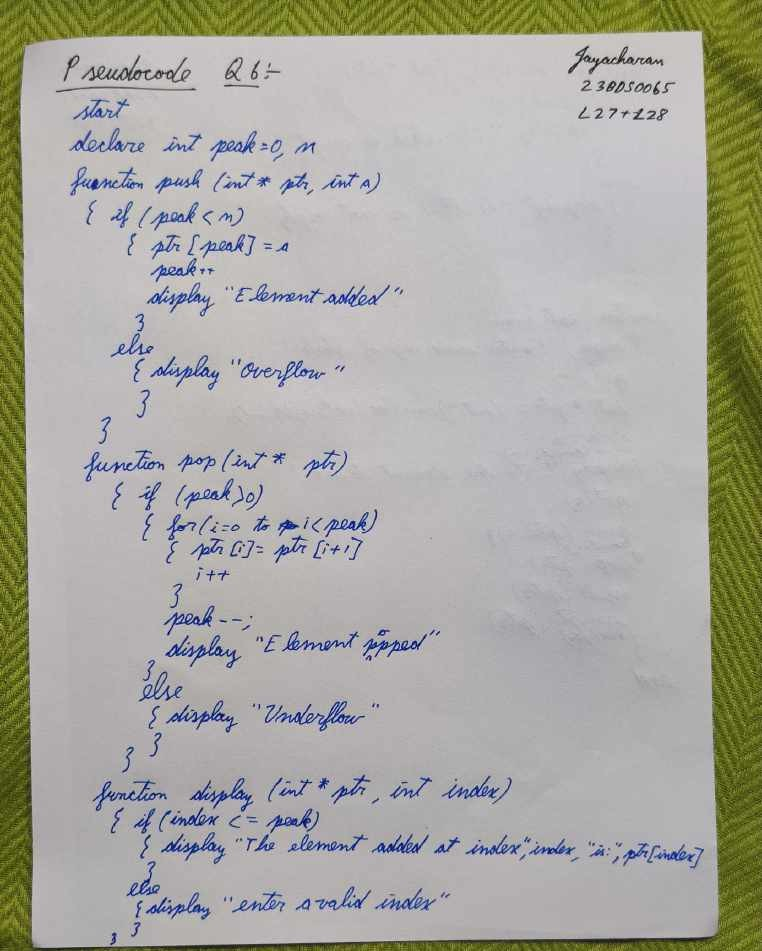 Pseudocode Q6:-
Jayacharan
23BDS0065
L27+L28
start
declare int peak=0, n
function push (int* ptr, int a)
{ if (peak < n)
{ ptr [peak] = a
peak++
display "Element added"
}
else
{ display "Overflow"
}
}
function pop (int* ptr)
{ if (peak>0)
{ for (i=0 to i< peak)
{ ptr [i]= ptr [i+1]
i++
}
peak--;
display "Element popped"
}
else
{ display "Underflow"
}
}
function display (int* ptr, int index)
{ if (index <= peak)
{ display "The element added at index", index, "is:", ptr[index]
}
else
{ display "enter a valid index"
}
}